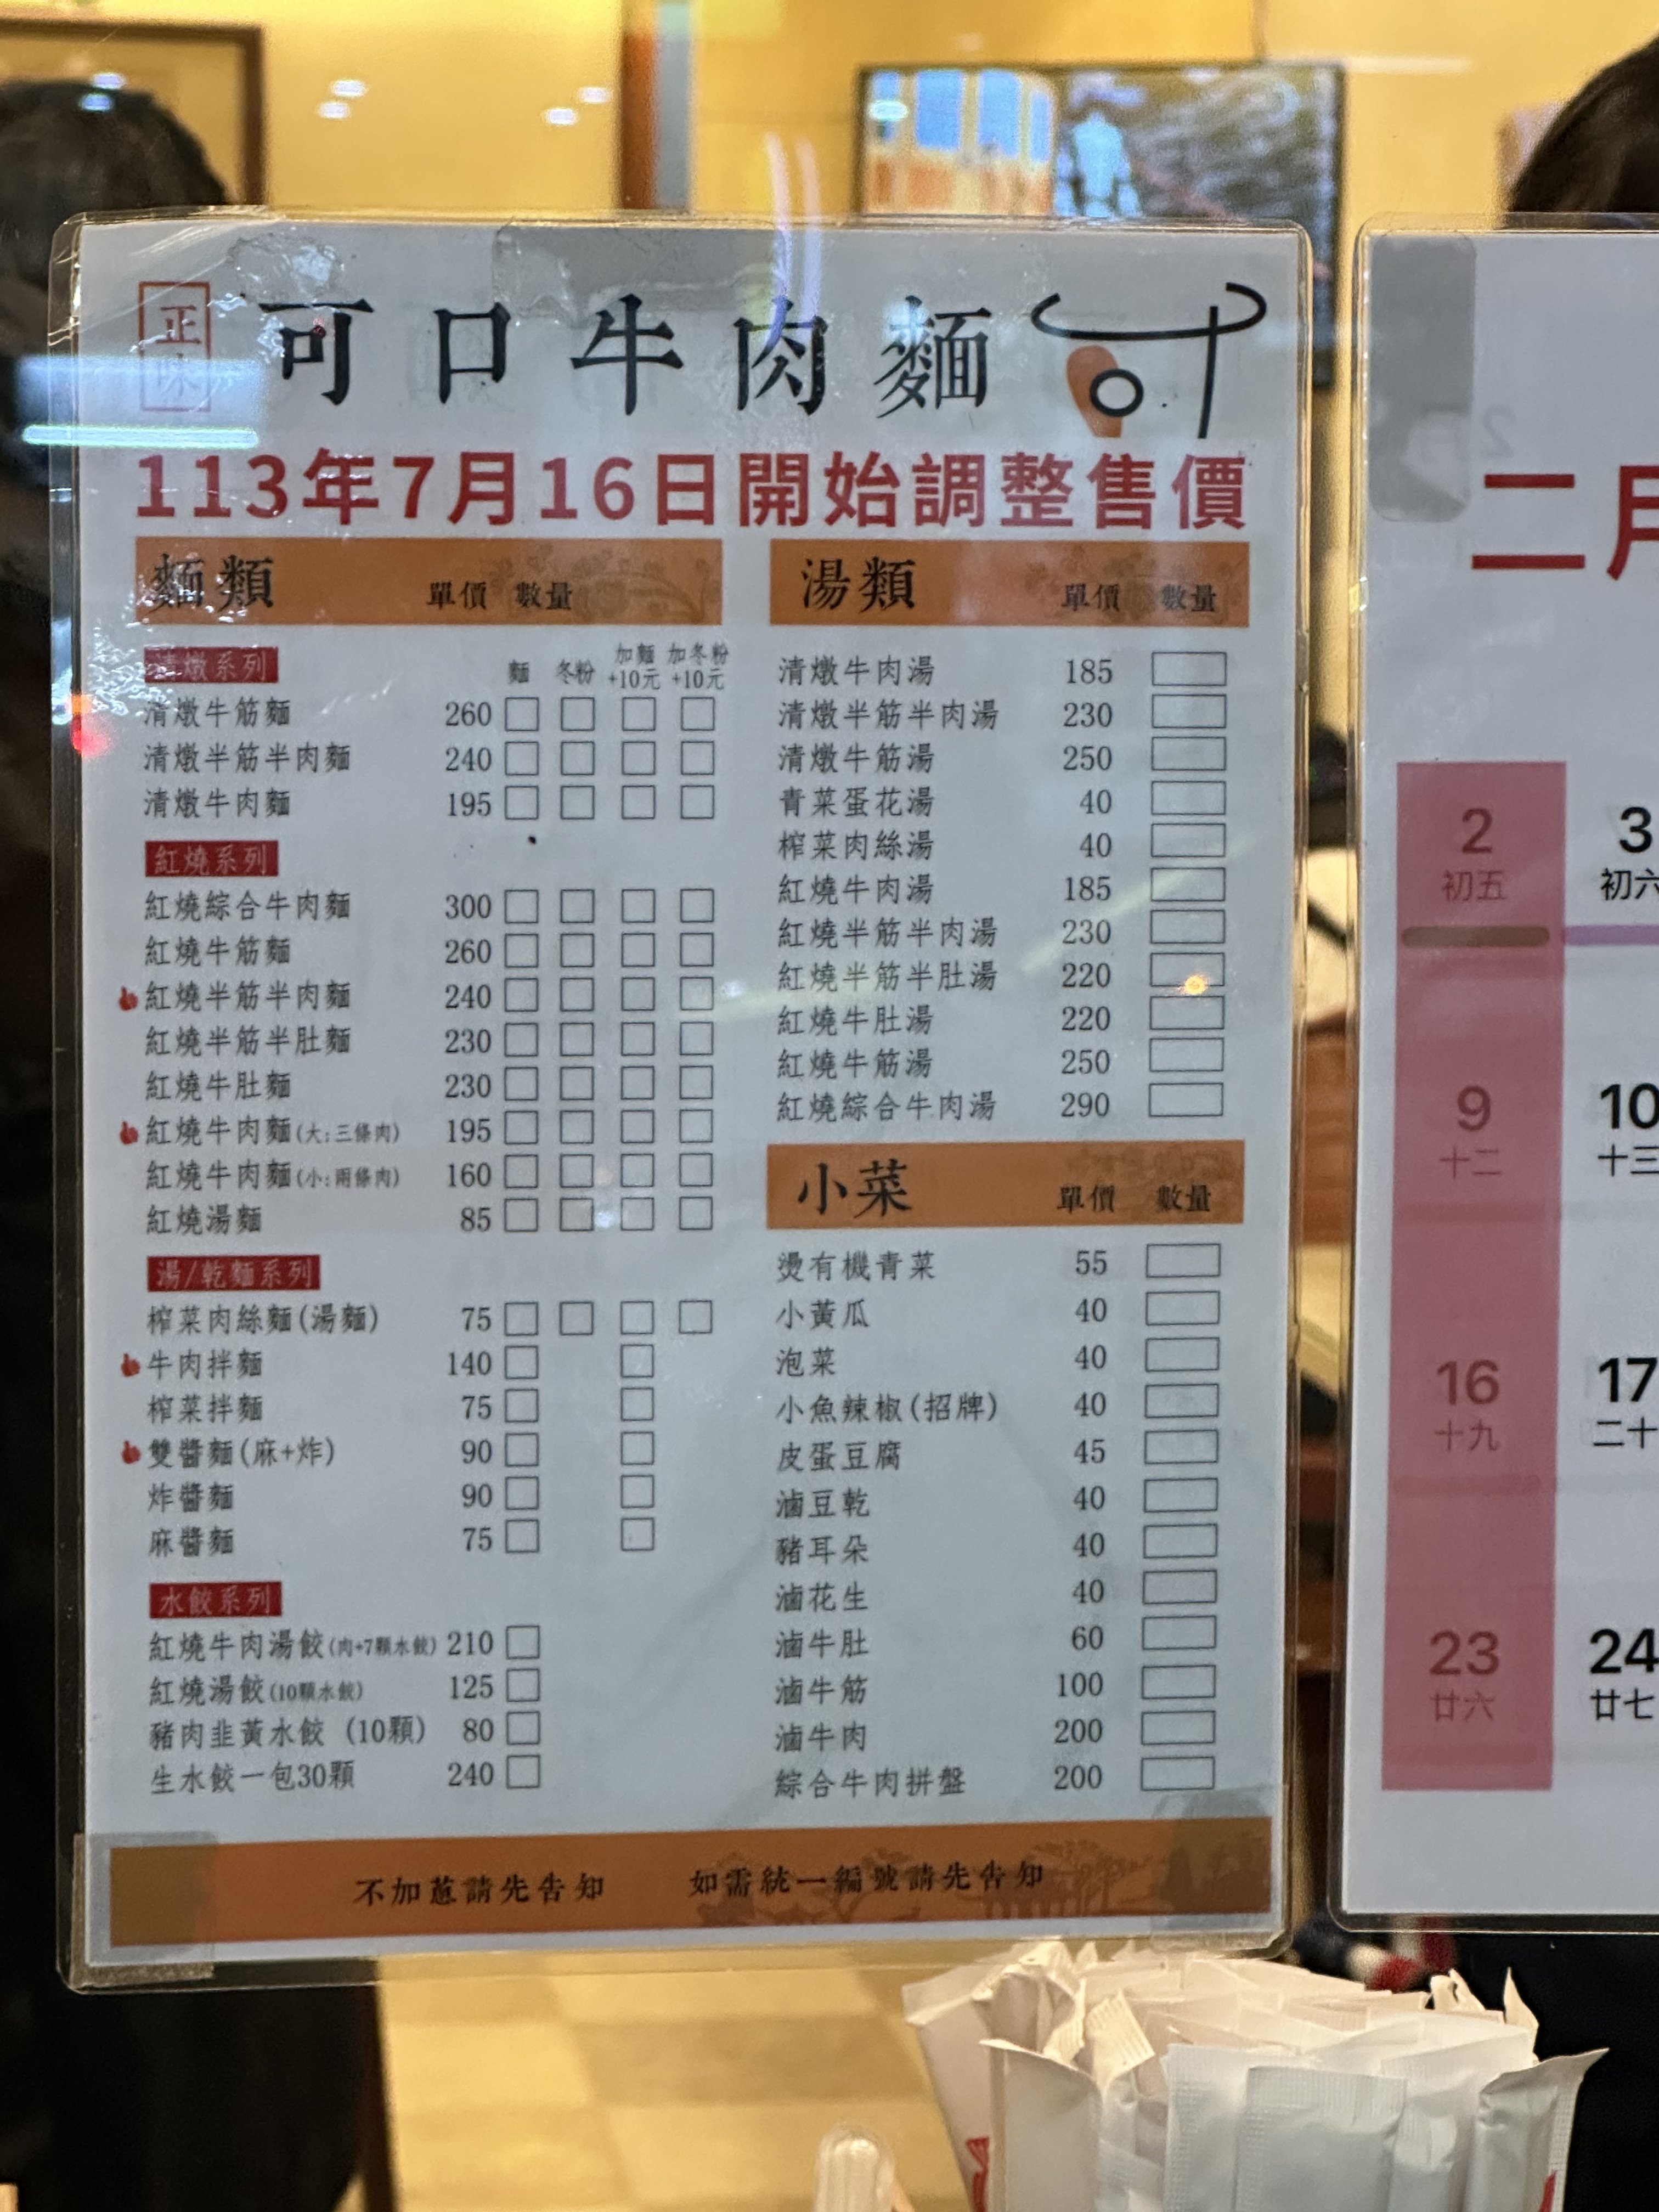 正味
可口牛肉麵
113年7月16日開始調整售價
麵類 單價 數量
清燉系列 麵 冬粉 加麵+10元 加冬粉+10元
清燉牛筋麵 260
清燉半筋半肉麵 240
清燉牛肉麵 195
紅燒系列
紅燒綜合牛肉麵 300
紅燒牛筋麵 260
紅燒半筋半肉麵 240
紅燒半筋半肚麵 230
紅燒牛肚麵 230
紅燒牛肉麵(大:三條肉) 195
紅燒牛肉麵(小:兩條肉) 160
紅燒湯麵 85
湯/乾麵系列
榨菜肉絲麵(湯麵) 75
牛肉拌麵 140
榨菜拌麵 75
雙醬麵(麻+炸) 90
炸醬麵 90
麻醬麵 75
水餃系列
紅燒牛肉湯餃(肉+7顆水餃) 210
紅燒湯餃(10顆水餃) 125
豬肉韭黃水餃 (10顆) 80
生水餃一包30顆 240
湯類 單價 數量
清燉牛肉湯 185
清燉半筋半肉湯 230
清燉牛筋湯 250
青菜蛋花湯 40
榨菜肉絲湯 40
紅燒牛肉湯 185
紅燒半筋半肉湯 230
紅燒半筋半肚湯 220
紅燒牛肚湯 220
紅燒牛筋湯 250
紅燒綜合牛肉湯 290
小菜 單價 數量
燙有機青菜 55
小黃瓜 40
泡菜 40
小魚辣椒(招牌) 40
皮蛋豆腐 45
滷豆乾 40
豬耳朵 40
滷花生 40
滷牛肚 60
滷牛筋 100
滷牛肉 200
綜合牛肉拼盤 200
不加蔥請先告知 如需統一編號請先告知
二月
2 3
初五 初六
9 10
十二 十三
16 17
十九 二十
23 24
廿六 廿七